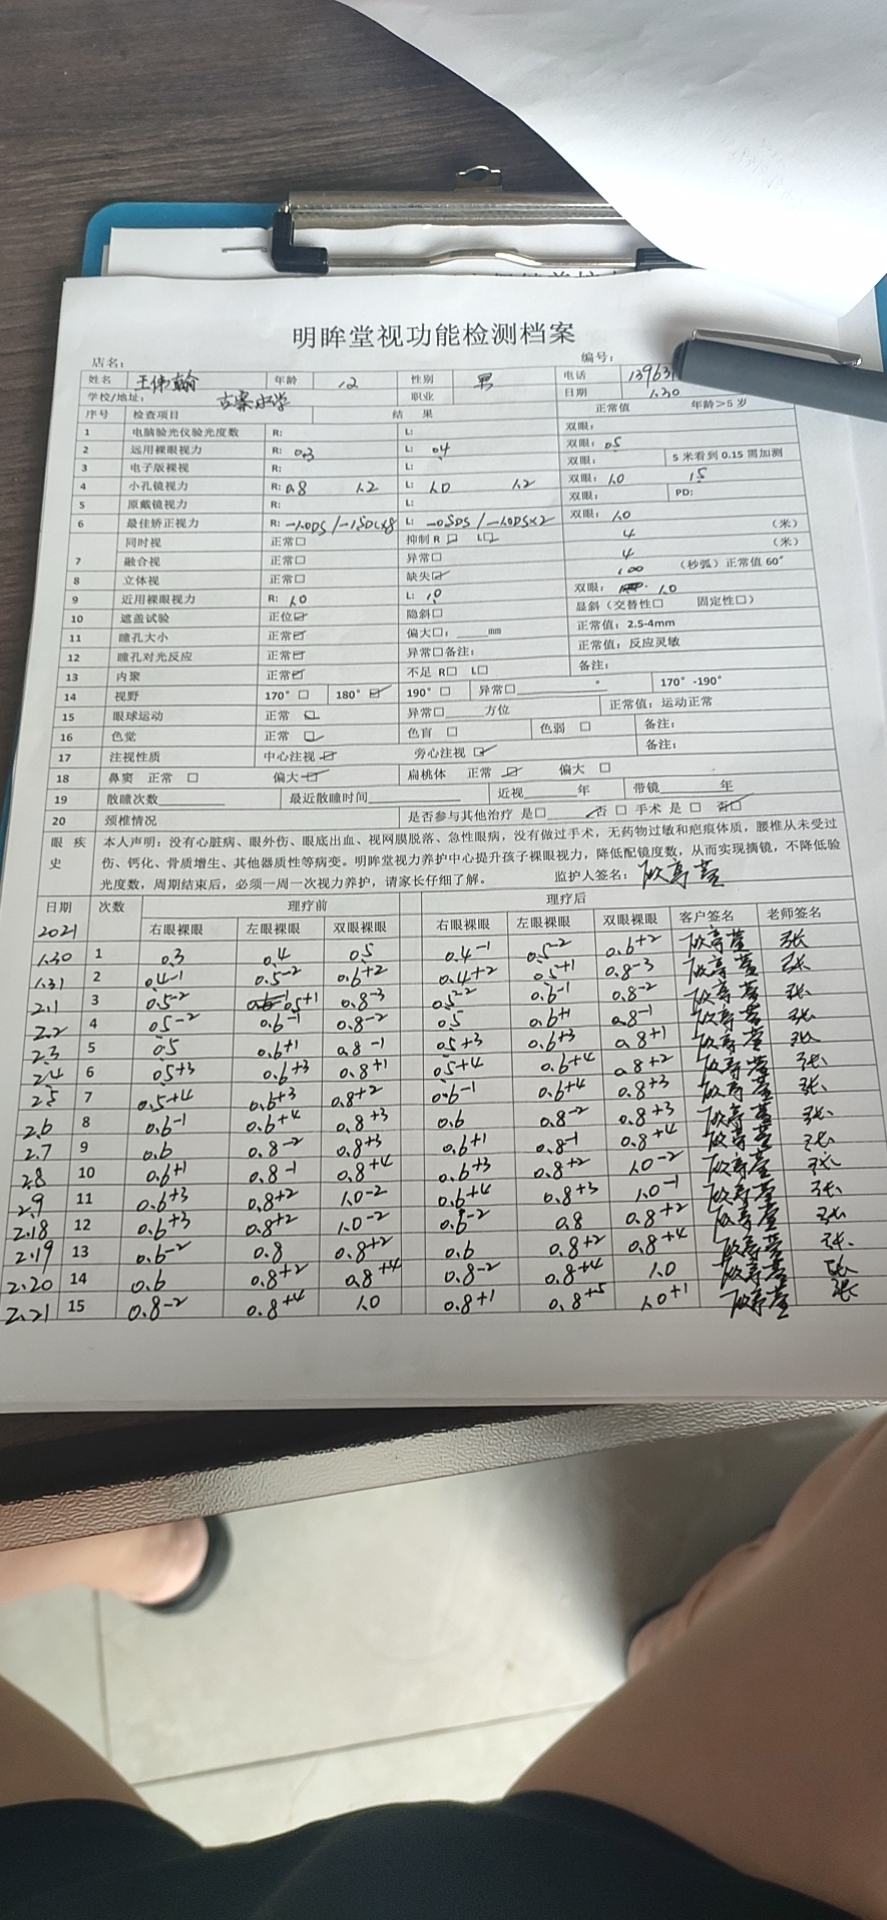 明眸堂视功能检测档案
店名： 编号：
姓名 王伟翰 年龄 12 性别 男 电话 13963
学校/地址： 古寨小学 职业 日期 1.30
序号 检查项目 结 果 正常值 年龄>5岁
1 电脑验光仪验光度数 R: L: 双眼：
2 远用裸眼视力 R: 0.3 L: 0.4 双眼：0.5
3 电子版裸视 R: L: 双眼： 5米看到0.15需加测
4 小孔镜视力 R: 0.8 1.2 L: 1.0 1.2 双眼：1.0 1.5
5 原戴镜视力 R: L: 双眼： PD:
6 最佳矫正视力 R: -1.0DS / L: -0.5DS / 双眼：1.0
同时视 正常□ 抑制 R □ L□ 4 （米）
7 融合视 正常□ 异常□ 4 （米）
8 立体视 正常□ 缺失☑ 100 （秒弧）正常值 60″
9 近用裸眼视力 R: 1.0 L: 1.0 双眼： 1.0
10 遮盖试验 正位☑ 隐斜□ 显斜（交替性□ 固定性□）
11 瞳孔大小 正常☑ 偏大□：____mm 正常值：2.5-4mm
12 瞳孔对光反应 正常☑ 异常□备注： 正常值：反应灵敏
13 内聚 正常☑ 不足 R□ L□ 备注：
14 视野 170°□ 180°☑ 190°□ 异常□__________° 170°-190°
15 眼球运动 正常 ☑ 异常□_____方位 正常值：运动正常
16 色觉 正常 ☑ 色盲 □ 色弱 □ 备注：
17 注视性质 中心注视☑ 旁心注视☑ 备注：
18 鼻窦 正常 □ 偏大☑ 扁桃体 正常 ☑ 偏大 □
19 散瞳次数__________ 最近散瞳时间__________ 近视______年 带镜________年
20 颈椎情况 是否参与其他治疗 是□ 否 □ 手术 是 □ 否☑
眼疾史 本人声明：没有心脏病、眼外伤、眼底出血、视网膜脱落、急性眼病，没有做过手术，无药物过敏和疤痕体质，腰椎从未受过
伤、钙化、骨质增生、其他器质性等病变。明眸堂视力养护中心提升孩子裸眼视力，降低配镜度数，从而实现摘镜，不降低验
光度数，周期结束后，必须一周一次视力养护，请家长仔细了解。 监护人签名：
日期 次数 理疗前 理疗后
2021 右眼裸眼 左眼裸眼 双眼裸眼 右眼裸眼 左眼裸眼 双眼裸眼 客户签名 老师签名
1.30 1 0.3 0.4 0.5 0.4-1 0.5-2 0.6+2 张
1.31 2 0.4-1 0.5-2 0.6+2 0.4+2 0.5+1 0.8-3 张
2.1 3 0.5-2 0.5+1 0.8-3 0.5-2 0.6-1 0.8-2 张
2.2 4 0.5-2 0.6-1 0.8-2 0.5 0.6+1 0.8-1 张
2.3 5 0.5 0.6+1 0.8-1 0.5+3 0.6+3 0.8+1 张
2.4 6 0.5+3 0.6+3 0.8+1 0.5+4 0.6+4 0.8+2 张
2.5 7 0.5+4 0.6+3 0.8+2 0.6-1 0.6+4 0.8+3 张
2.6 8 0.6-1 0.6+4 0.8+3 0.6 0.8-2 0.8+3 张
2.7 9 0.6 0.8-2 0.8+3 0.6+1 0.8-1 0.8+4 张
2.8 10 0.6+1 0.8-1 0.8+4 0.6+3 0.8+2 1.0-2 张
2.9 11 0.6+3 0.8+2 1.0-2 0.6+4 0.8+3 1.0-1 张
2.18 12 0.6+3 0.8+2 1.0-2 0.6-2 0.8 0.8+2 张
2.19 13 0.6-2 0.8 0.8+2 0.6 0.8+2 0.8+4 张
2.20 14 0.6 0.8+2 0.8+4 0.8-2 0.8+4 1.0 张
2.21 15 0.8-2 0.8+4 1.0 0.8+1 0.8+5 1.0+1 张